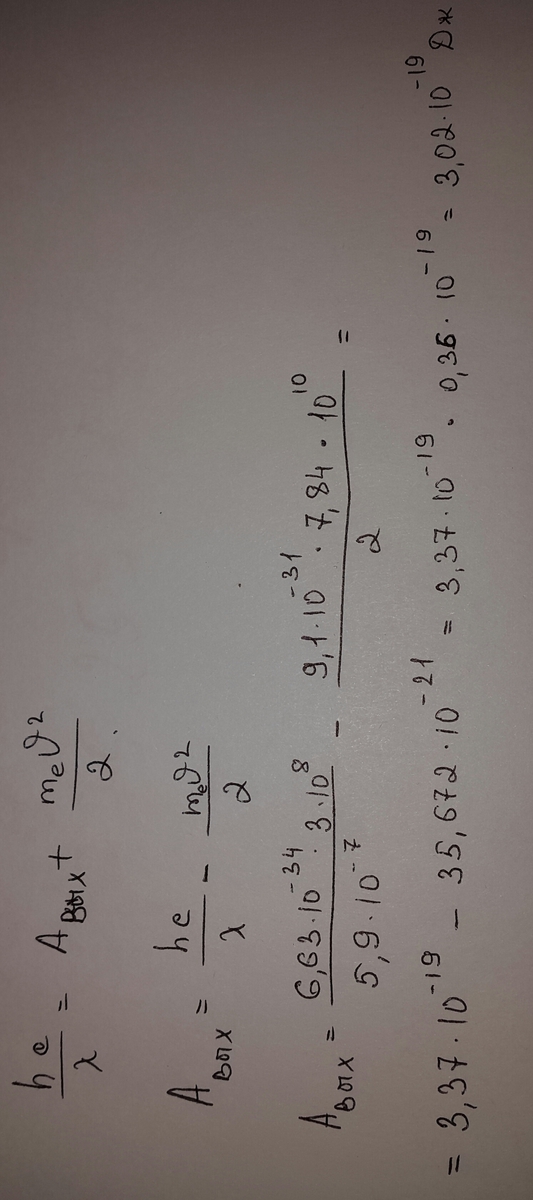 hc/λ = Aвых + mₑϑ²/2.
Aвых = hc/λ − mₑϑ²/2
Aвых = 6,63·10⁻³⁴·3·10⁸/5,9·10⁻⁷ − 9,1·10⁻³¹·7,84·10¹⁰/2 =
= 3,37·10⁻¹⁹ − 35,672·10⁻²¹ = 3,37·10⁻¹⁹ · 0,36·10⁻¹⁹ = 3,02·10⁻¹⁹ Дж